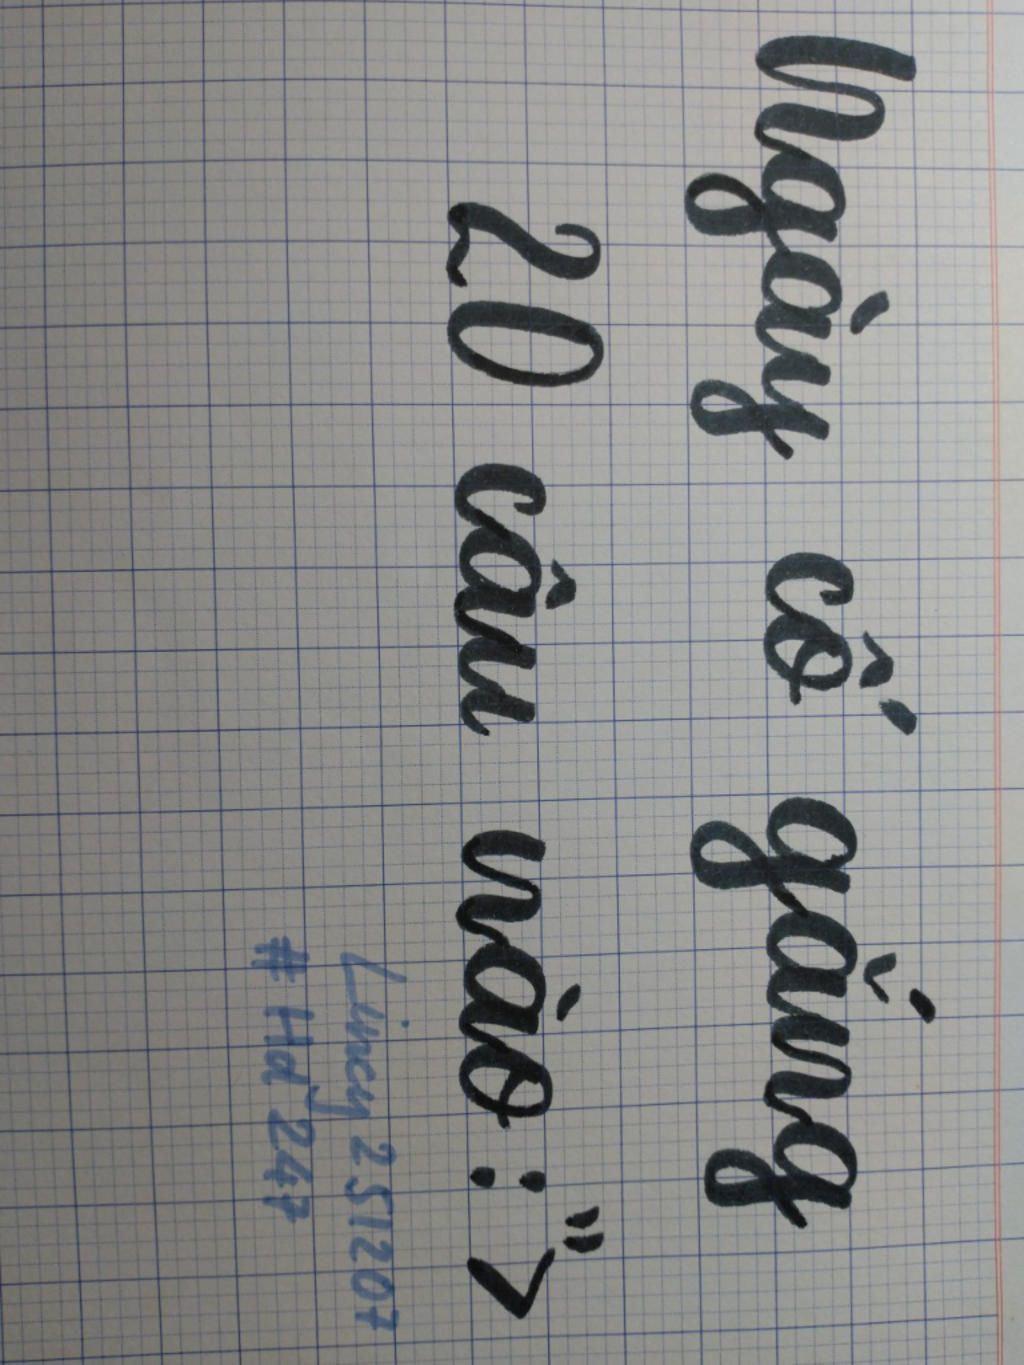 Ngáy cố gắng
20 câu nào :">
Lincy 251207
# Hd 247